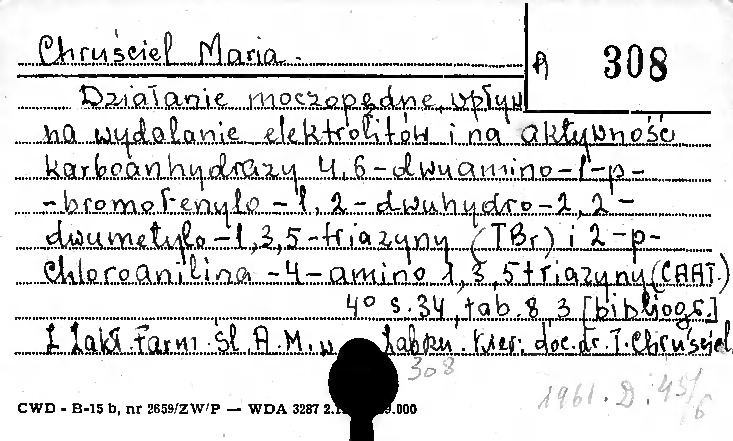 Chruściel Maria.
A 308
Działanie moczopędne, wpływ
na wydalanie elektrolitów i na aktywność
karboanhydrazy 4,6-dwuamino-1-p-
-bromofenylo-1,2-dwuhydro-2,2-
dwumetylo-1,3,5-triazyny (TBr) i 2-p-
chloroanilina-4-amino 1,3,5 triazyny (CAAT.)
4° s.34, tab.8, 3 [bibliogr.]
Z Zakł. Farm. Śl. A.M. w Zabrzu. Kier: doc. dr. T. Chruściel
308
1961. D. 45/6
CWD - B-15 b, nr 2659/ZW/P — WDA 3287 2. .000